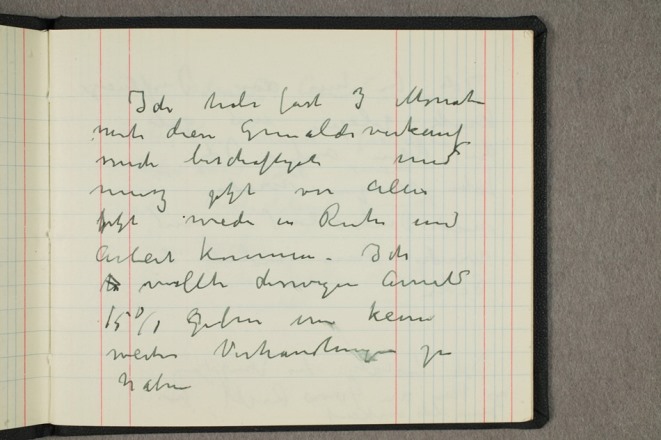 Ich habe fast 3 Monate
mit diesen Gemäldeverkauf
mich beschäftigt und
muss jetzt vor allen
jetzt wieder in Ruhe und
Arbeit kommen. Ich
wollte deswegen Arnold
15% geben um keine
weitere Verhandlungen zu
haben